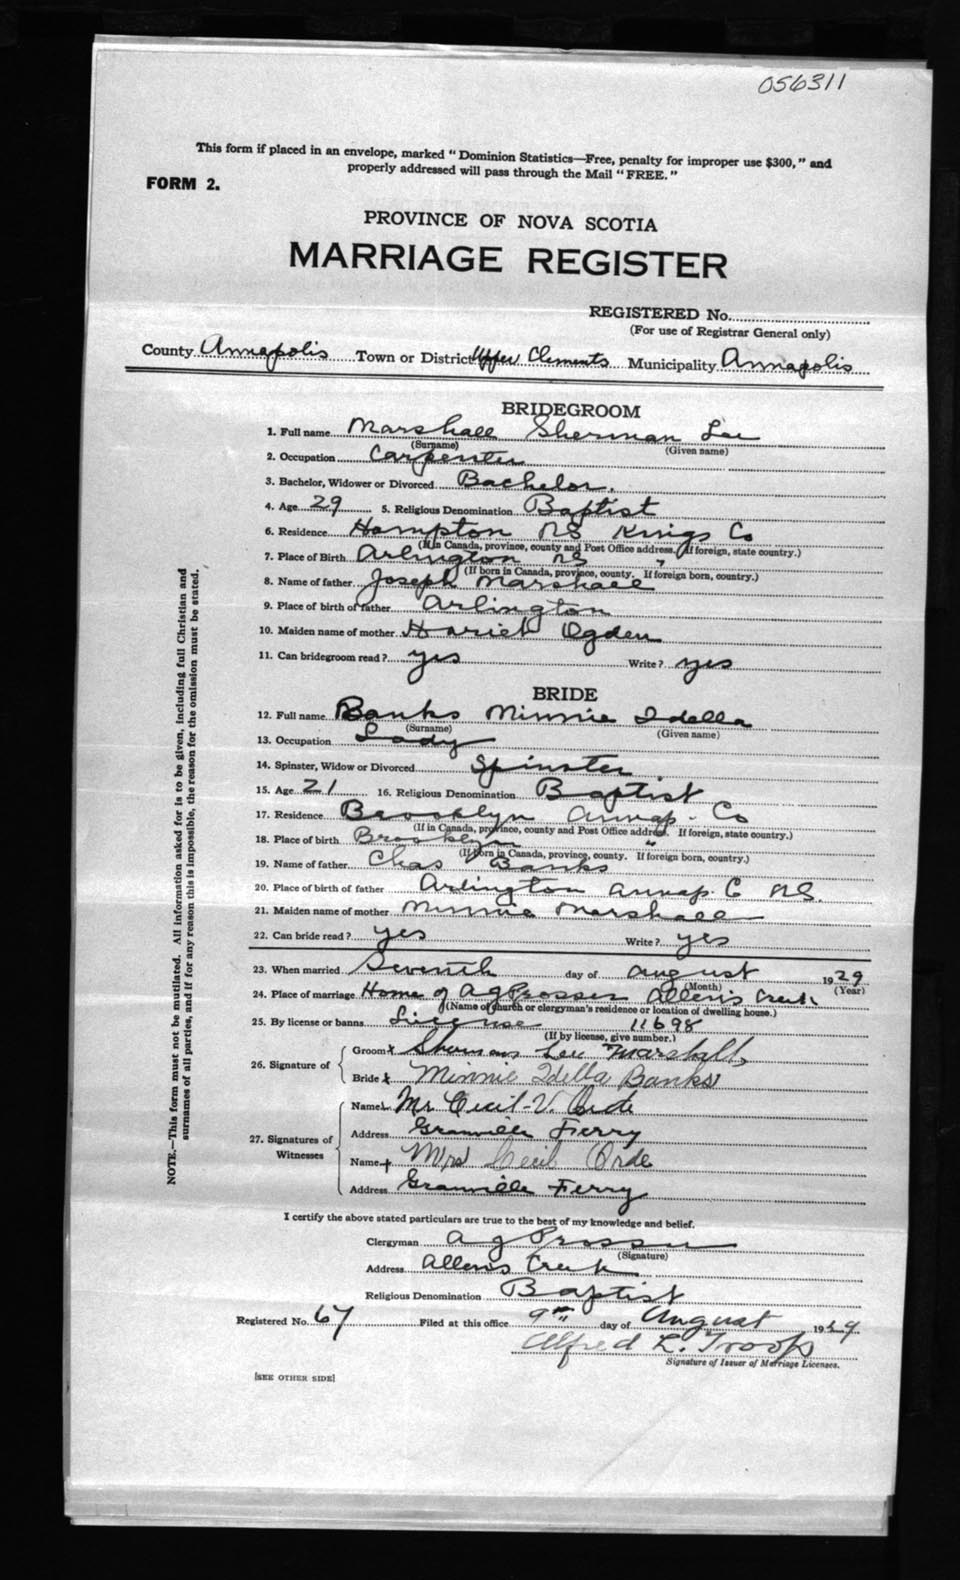 056311
This form if placed in an envelope, marked "Dominion Statistics—Free, penalty for improper use $300," and
properly addressed will pass through the Mail "FREE."
FORM 2.
PROVINCE OF NOVA SCOTIA
MARRIAGE REGISTER
REGISTERED No.
(For use of Registrar General only)
County Annapolis Town or District Upper Clements Municipality Annapolis
BRIDEGROOM
1. Full name Marshall Sherman Lee
(Surname) (Given name)
2. Occupation Carpenter
3. Bachelor, Widower or Divorced Bachelor.
4. Age 29 5. Religious Denomination Baptist
6. Residence Hampton NS Kings Co
(If in Canada, province, county and Post Office address. If foreign, state country.)
7. Place of Birth Arlington NS "
(If born in Canada, province, county. If foreign born, country.)
8. Name of father Joseph Marshall
9. Place of birth of father Arlington
10. Maiden name of mother Ogden
11. Can bridegroom read? yes Write? yes
BRIDE
12. Full name Banks Minnie Idella
(Surname) (Given name)
13. Occupation Lady
14. Spinster, Widow or Divorced Spinster
15. Age 21 16. Religious Denomination Baptist
17. Residence Brooklyn Annap. Co
(If in Canada, province, county and Post Office address. If foreign, state country.)
18. Place of birth Brooklyn "
(If born in Canada, province, county. If foreign born, country.)
19. Name of father Chas Banks
20. Place of birth of father Arlington Annap. C NS.
21. Maiden name of mother Minnie Marshall
22. Can bride read? yes Write? yes
23. When married Seventh day of August 1929
(Month) (Year)
24. Place of marriage Home of A G Prosser Allens Creek
(Name of church or clergyman's residence or location of dwelling house.)
25. By license or banns License 11698
(If by license, give number.)
26. Signature of
Groom x Sherman Lee Marshall
Bride x Minnie Idella Banks
27. Signatures of Witnesses
Name Mr Cecil V. Orde
Address Granville Ferry
Name Mrs Cecil Orde
Address Granville Ferry
I certify the above stated particulars are true to the best of my knowledge and belief.
Clergyman A G Prosser
(Signature)
Address Allens Creek
Religious Denomination Baptist
Registered No. 67 Filed at this office 9th day of August 1929
Alfred L. Troop
Signature of Issuer of Marriage Licenses.
[SEE OTHER SIDE]
NOTE.—This form must not be mutilated. All information asked for is to be given, including full Christian and
surnames of all parties, and if for any reason this is impossible, the reason for the omission must be stated.